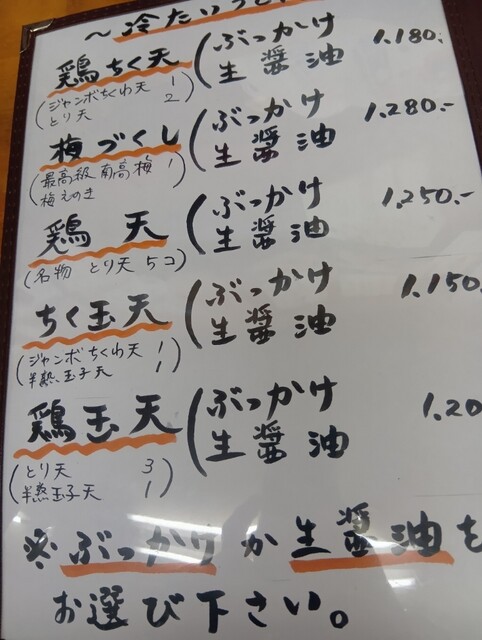 ～冷たいうどん
鶏ちく天 ぶっかけ 1,180.-
(ジャンボちくわ天 1 生醤油
とり天 2
梅づくし ぶっかけ 1,280.-
(最高級 南高梅 1) 生醤油
梅えのき
鶏天 ぶっかけ 1,250.-
(名物 とり天 5コ) 生醤油
ちく玉天 ぶっかけ 1,150.
(ジャンボちくわ天 1 生醤油
半熟玉子天 1
鶏玉天 ぶっかけ 1,20
(とり天 3 生醤油
半熟玉子天 1
※ぶっかけか生醤油を
お選び下さい。